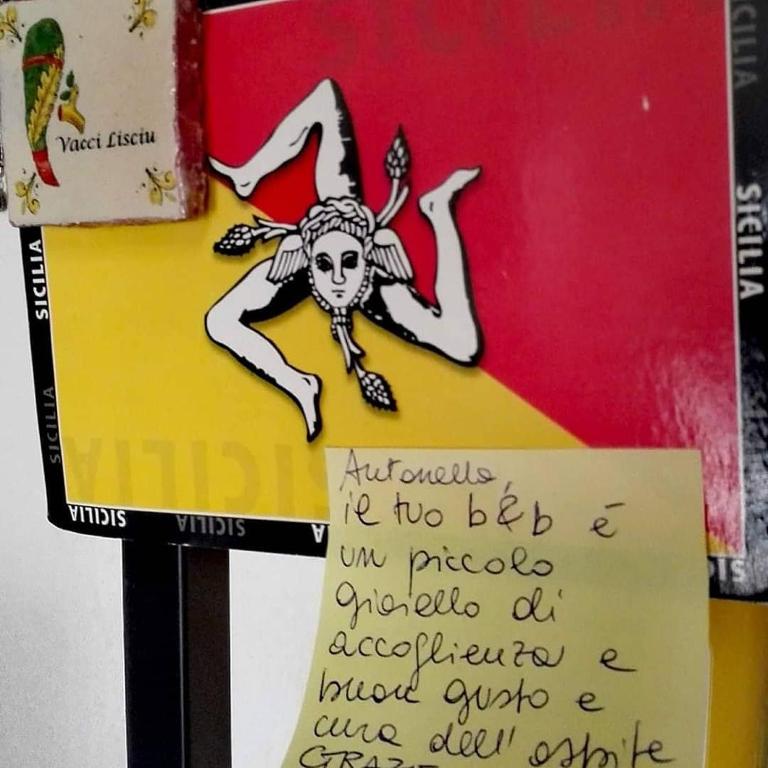 Vacci Lisciu
SICILIA
SICILIA
SICILIA
SICILIA
SICILIA
SICILIA
SICILIA
SICILIA
Antonella,
il tuo b&b é
un piccolo
gioiello di
accoglienza e
buon gusto e
cura dell'ospite
GRAZIE